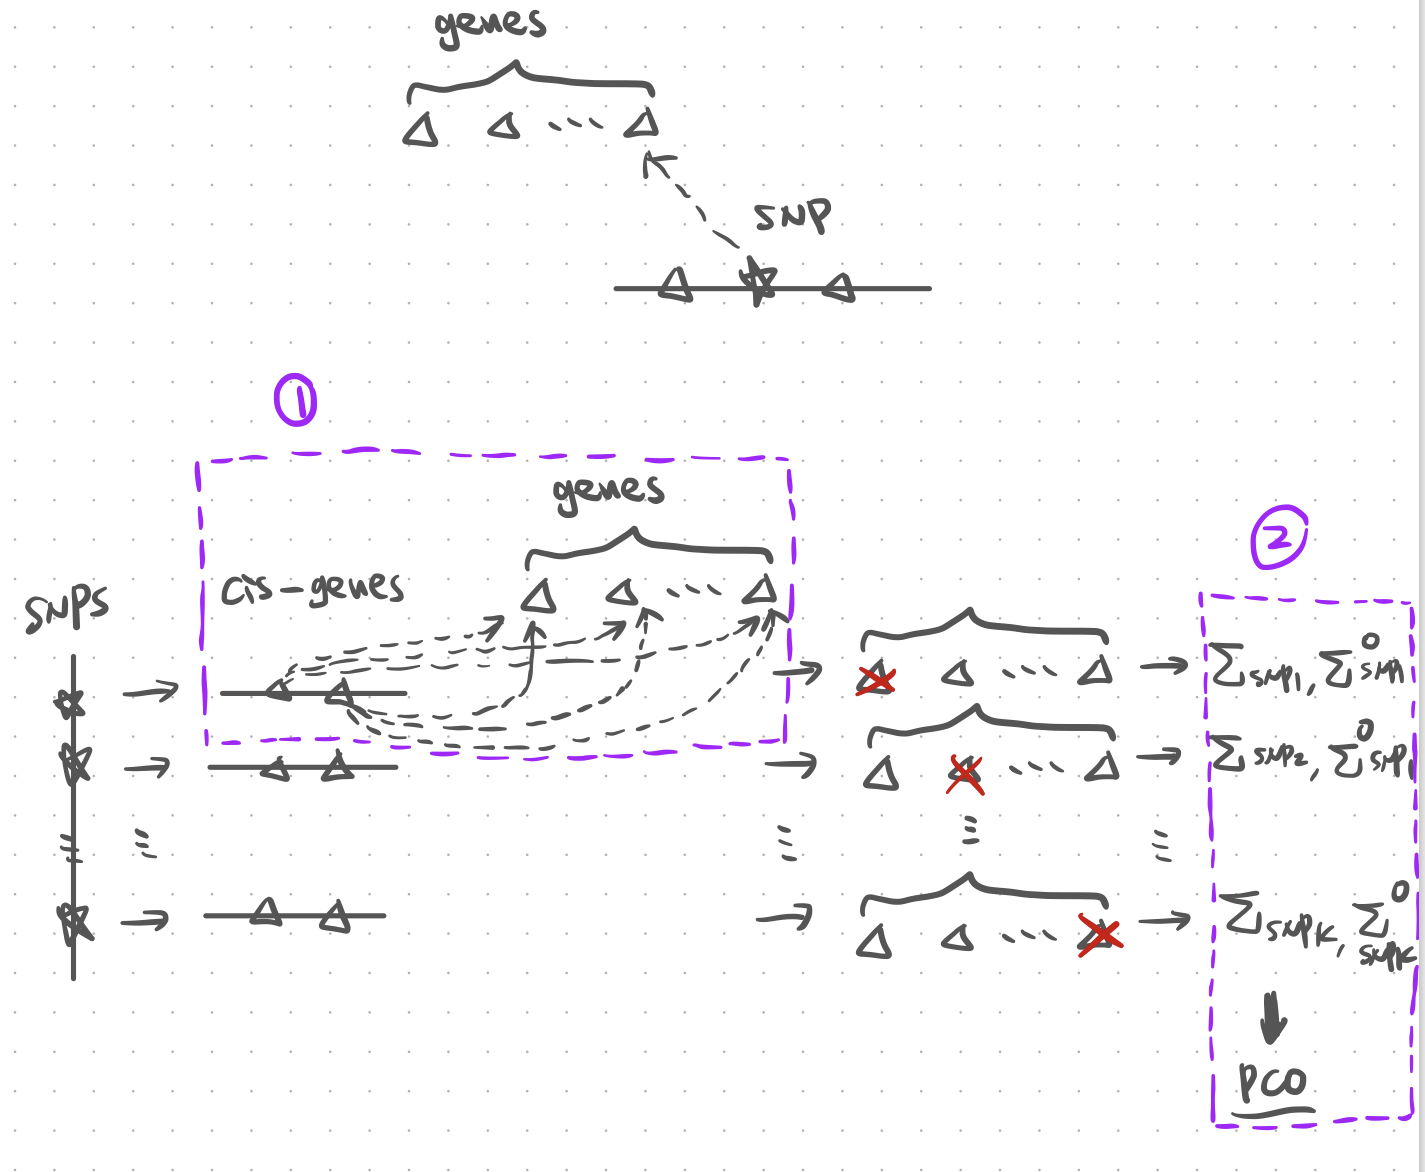 genes
SNP
①
genes
②
cis-genes
SNPs
Σ SNP1, Σ⁰ SNP1
Σ SNP2, Σ⁰ SNP1
Σ SNPK, Σ⁰ SNPK
PCO